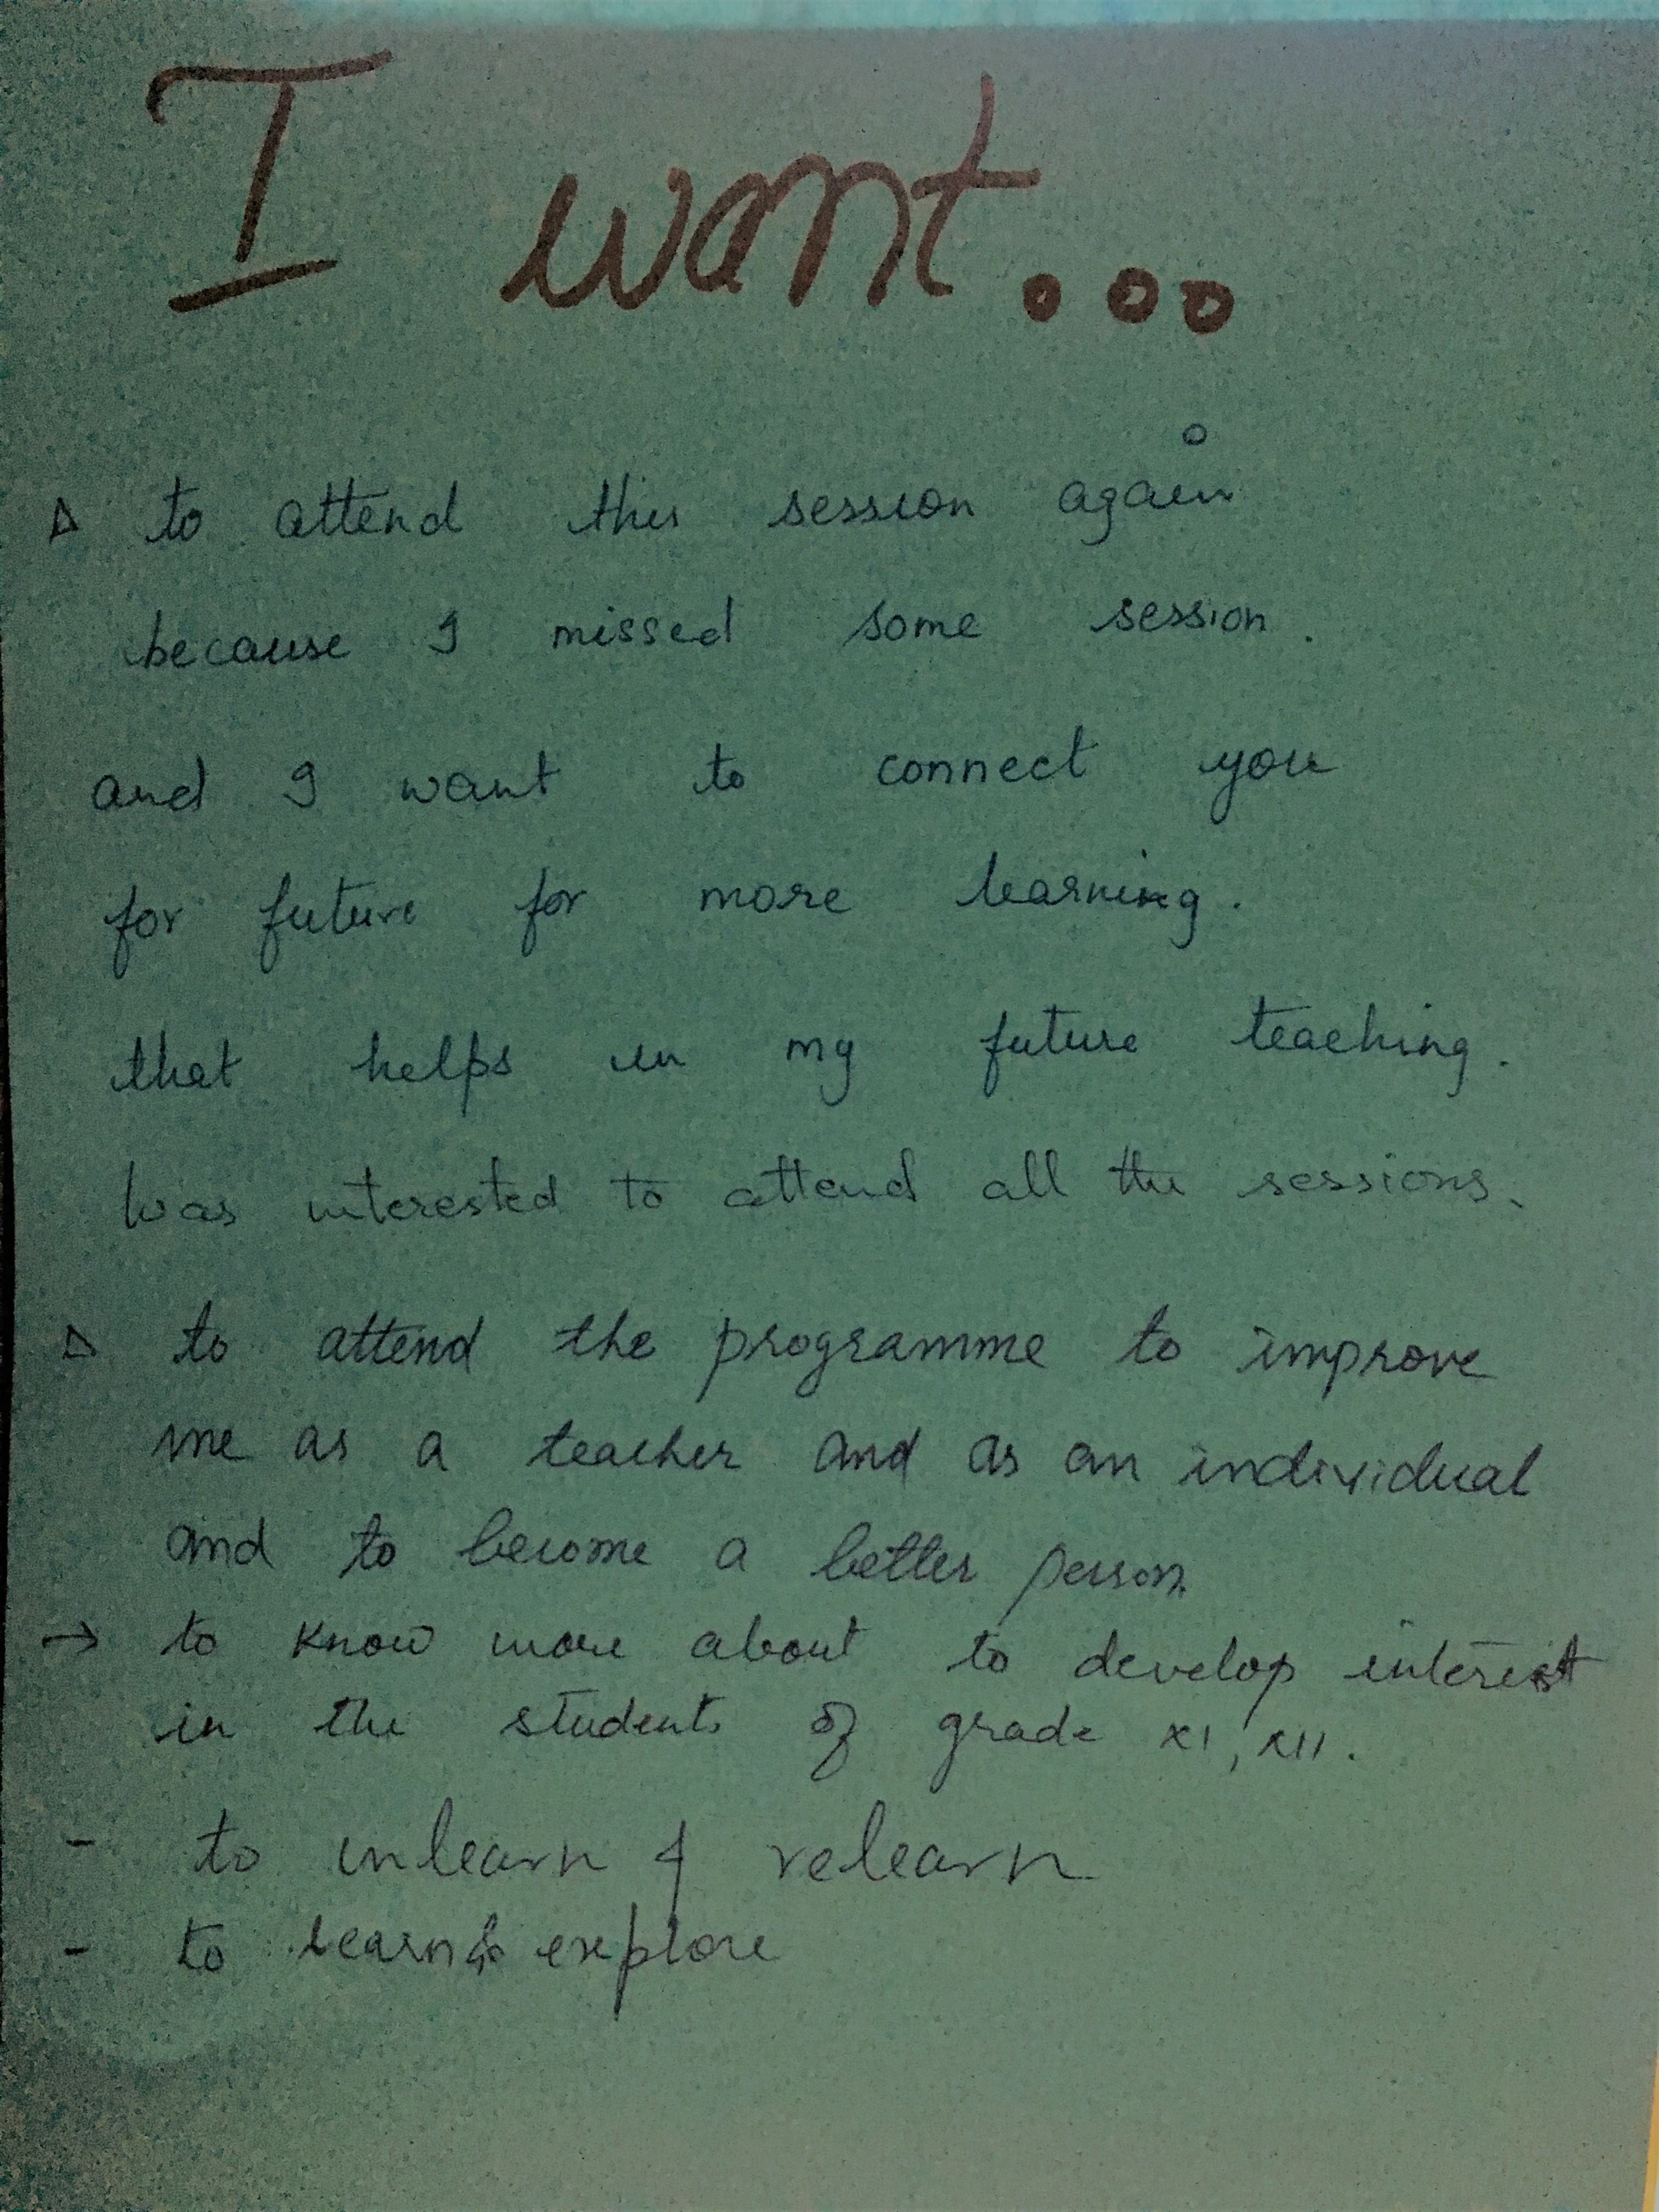 I want...
Δ to attend this session again
because I missed some session.
and I want to connect you
for future for more learning.
that helps in my future teaching.
Was interested to attend all the sessions.
Δ to attend the programme to improve
me as a teacher and as an individual
and to become a better person
→ to know more about to develop interest
in the students of grade XI, XII.
- to unlearn & relearn
- to learn & explore